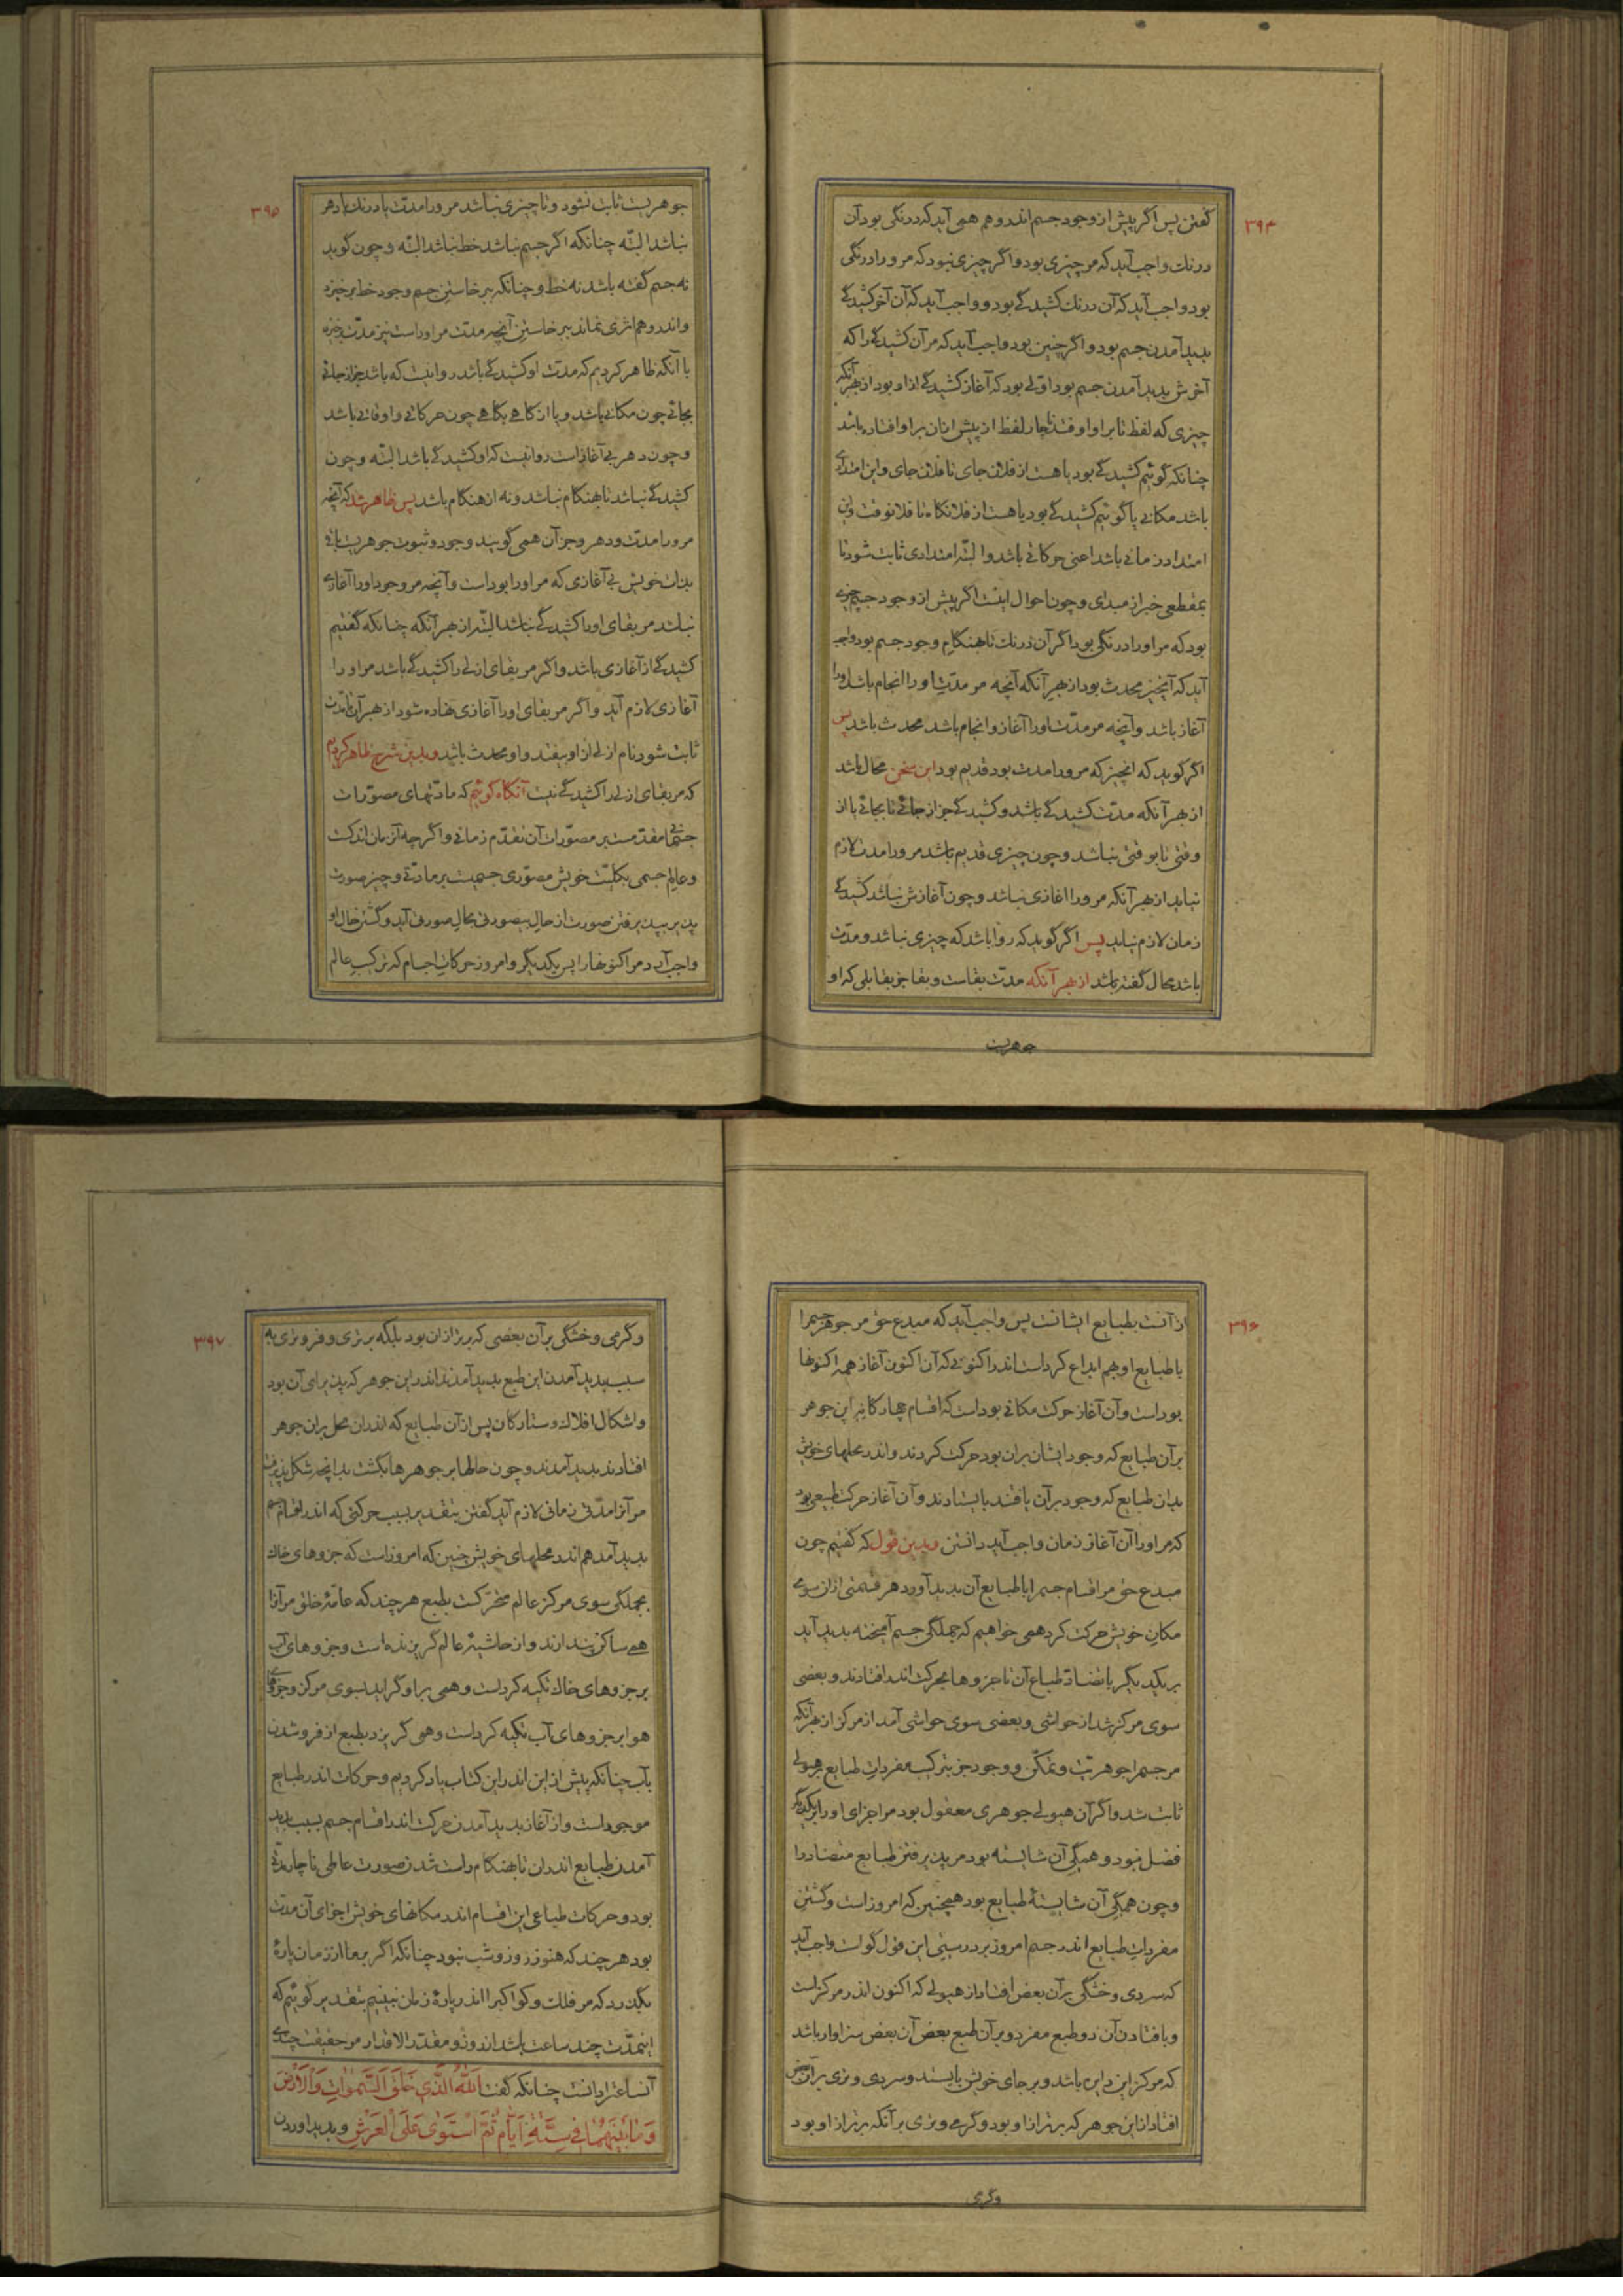 ۳۹۴
گفتن پس اگر پیش از وجود جسم اندر وهم همی آید که درنگی بود آن
درنك واجب آید که مر چیزی بود و اگر چیزی نبود که مرورا درنگی
بود واجب آید که آن درنك کشیدگی بود و واجب آید که آن آخر کشیدگی
پدید آمدن جسم بود و اگر چنین بود واجب آید که مر آن کشیدگی را که
آخرش پدید آمدن جسم بود اولی بود که آغاز کشیدگی ازو بود از بهر آنکه
چیزی که لفظ تا بر او اوفتد ناچار لفظ از پیش از آن بر او افتاده باشد
چنانکه گوئیم کشیدگی بود یا هست از فلان جای تا فلان جای و این امتدای
باشد مکانی یا گوئیم کشیدگی بود یا هست از فلانگاه تا فلانوقت و این
امتداد زمانی باشد اعنی حرکاتی باشد و البته امتدادی ثابت شود تا
بمقطعی خبر از مبدای و چون احوال اینست اگر پیش از وجود جسم چیزی
بود که مر اورا درنگی بود اگر آن درنك تا هنگام وجود جسم بود واجب
آید که آنچیز محدث بود از بهر آنکه آنچه مر مدت اورا انجام باشد اورا
آغاز باشد و آنچه مر مدت اورا آغاز و انجام باشد محدث باشد پس
اگر گوید که انچیز که مرورا مدت بود قدیم بود این سخن محال باشد
از بهر آنکه مدت کشیدگی باشد و کشیدگی جز از جائی تا بجائی یا از
وقتی تا بوقتی نباشد و چون چیزی قدیم باشد مرورا مدت لازم
نیاید از بهر آنکه مرورا اغازی نباشد و چون آغازش نباشد کشیدگی
زمان لازم نیاید پس اگر گوید که روا باشد که چیزی نباشد و مدت
باشد محال گفته باشد از بهر آنکه مدت بقاست و بقا جز بقا بلی که او
جوهریت
۳۹۵
جوهریت ثابت نشود و تا چیزی نباشد مرورا مدت یا درنك یا دهر
نباشد البته چنانکه اگر جسم نباشد خط نباشد البته و چون گوید
نه جسم گفته باشد نه خط و چنانکه ببرخاستن جسم وجود خط برخیزد
و اندر وهم اثری نماند ببرخاستن آنچه مدت مر اوراست نیز مدت برخیزد
با آنکه ظاهر کردیم که مدت او کشیدگی باشد روا نیست که باشد جز از جائی
بجائی چون مکانی باشد و یا از گاهی بگاهی چون حرکاتی و اوقاتی باشد
و چون دهر بی آغاز است روا نیست که او کشیدگی باشد البته و چون
کشیدگی نباشد تا بهنگام نباشد و نه از هنگام باشد پس ظاهر شد که آنچه
مرورا مدت و دهر و جز آن همی گویند وجود و ثبوت جوهریت باقی
بذات خویش بی آغازی که مر اورا بود است و آنچه مر وجود اورا آغازی
نباشد مر بقای اورا کشیدگی نباشد البته از بهر آنکه چنانکه گفتیم
کشیدگی از آغازی باشد و اگر مر بقای ازلی را کشیدگی باشد مر اورا
آغازی لازم آید و اگر مر بقای اورا آغازی نهاده شود از بهر آن تا مدت
ثابت شود نام ازلی از او بیفتد و او محدث باشد و بدین شرح ظاهر کردیم
که مر بقای ازلی را کشیدگی نیست آنگاه گوئیم که مادتهای مصورات
جسمی متقدمست بر مصورات آن تقدم زمانی و اگر چه آن زمان اندکست
و عالم جسمی بکلیت خویش مصوری جسمیت بر مادتی و چیز صورت
پذیر بپذیرفتن صورت از حال بیصورتی بحال صورتی آید و گشتن حال او
واجب آرد مر اکنونها را پس یکدیگر و امروز حرکات اجسام که ترکیب عالم
۳۹۶
از آنست بطبایع ایشانست پس واجب آید که مبدع حق مر جوهر جسم را
با طبایع او بهم ابداع کرد است اندر اکنونی که آن اکنون آغاز همه اکنونها
بود است و آن آغاز حرکت مکانی بود است که اقسام چهارگانه این جوهر
بر آن طبایع که وجود ایشان بران بود حرکت کردند و اندر محلهای خویش
بدان طبایع که وجود بر آن یافتند بایستادند و آن آغاز حرکت طبیعی بود
که مر اورا آن آغاز زمان واجب آید دانستن و بدین قول که گفتیم چون
مبدع حق مر اقسام جسم را با طبایع آن پدید آورد هر قسمتی از آن سوی
مکان خویش حرکت کرد همی خواهیم که جملگی جسم آمیخته پدید آید
بر یکدیگر با تضاد طباع آن تا جزوها بحرکت اندر افتادند و بعضی
سوی مرکز شد از حواشی و بعضی سوی حواشی آمد از مرکز از بهر آنکه
مر جسم را جوهریت و تمکن و وجود جز بترکیب مفردات طبایع بر هیولی
ثابت شد و اگر آن هیولی جوهری معقول بود مر اجزای اورا بر یکدیگر
فضل نبود و همگی آن شایسته بود مر پذیرفتن طبایع متضاد را
و چون همگی آن شایستهٔ طبایع بود همچنین که امروز است و گشتن
مفردات طبایع اندر جسم امروز بر درستی این قول گواست واجب آید
که سردی و خشگی بر آن بعض افتاد از هیولی که اکنون اندر مرکز است
و با فتادن آن دو طبع مفرد و بر آن طبع بعض آن بعض سزاوار باشد
که مرکز این دایره باشد و بر جای خویش بایستد و سردی و تری بر آن بعض
افتاد از این جوهر که برتر از او بود و گرمی و تری بر آنکه برتر از او بود
وگرمی
۳۹۷
و گرمی و خشگی بر آن بعضی که برتر ازان بود بلکه برتری و فروتری به
سبب پدید آمدن این طبع پدید آمدند اندر این جوهر که پذیرای آن بود
و اشکال افلاك و ستارگان پس از آن طبایع که اندران محل بران جوهر
افتادند پدید آمدند و چون حالها بر جوهرها بگشت بدانچه شکل پذیرفت
مر آنرا مدتی زمانی لازم آید گفتن بتقدیر بسبب حرکتی که اندر اقسام جسم
پدید آمد هم اندر محلهای خویش چنین که امروز است که جزوهای خاك
بجملگی سوی مرکز عالم متحرکست بطبع هر چند که عامهٔ خلق مر آنرا
همی ساکن پندارند و از حاشیهٔ عالم گریزنده است و جزوهای آب
بر جزوهای خاك تکیه کرد است و همی بر او گراید بسوی مرکز و جزوهای
هوا بر جزوهای آب تکیه کرد است و همی گریزد بطبع از فرو شدن
بآب چنانکه پیش از این اندر این کتاب یاد کردیم و حرکات اندر طبایع
موجود است و از آغاز پدید آمدن حرکت اندر اقسام جسم بسبب پدید
آمدن طبایع اندران تا بهنگام راست شدن صورت عالمی ناچار مدتی
بود و حرکات طباعی این اقسام اندر مکانهای خویش اجزای آن مدت
بود هر چند که هنوز روز و شب نبود چنانکه اگر بر ما از زمان پارهٔ
بگذرد که مر فلك و کواکب را اندر پارهٔ زمان نبینیم بتقدیر گوئیم که
اینمدت چند ساعت باشد از روز و مقدر الاقدار مر حقیقت چندی
آنساعترا دانست چنانکه گفت اَللّٰهُ الَّذِي خَلَقَ السَّمٰوَاتِ وَالْاَرْضَ
وَمَا بَيْنَهُمَا فِي سِتَّةِ اَيَّامٍ ثُمَّ اسْتَوٰى عَلَى الْعَرْشِ و پدید اوردن